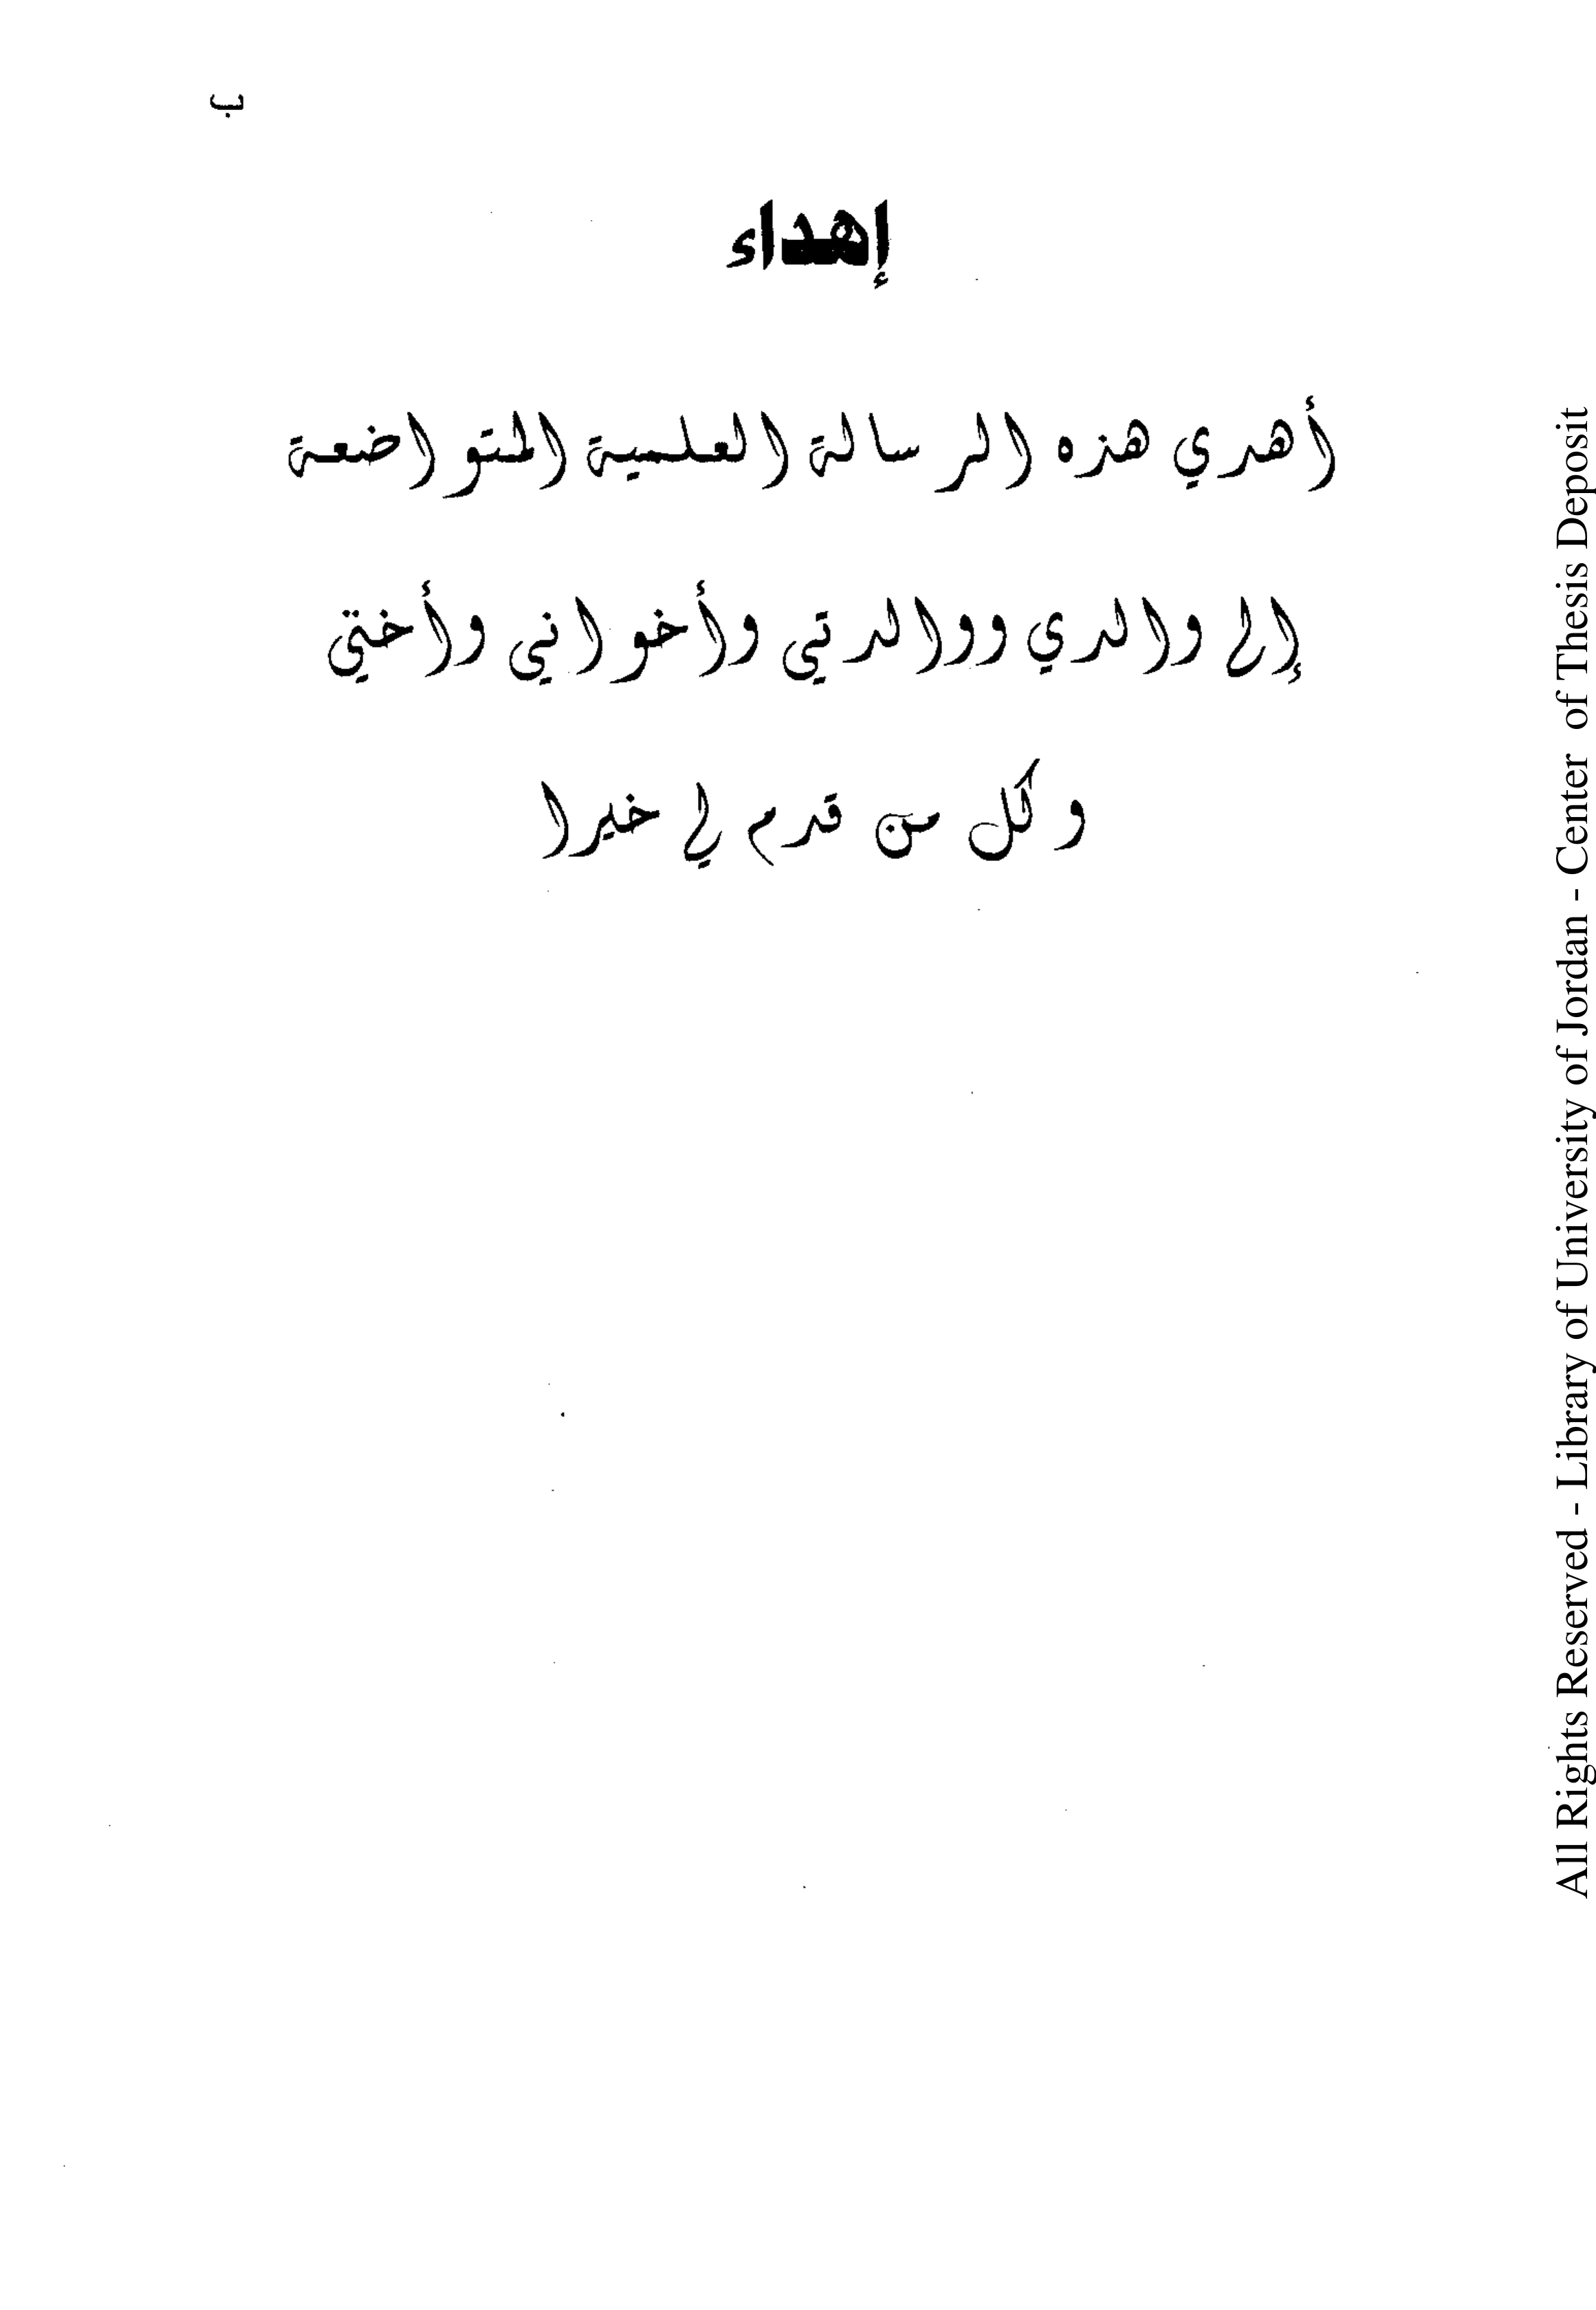 ب
إهداء
أهدي هذه الرسالة العلمية المتواضعة
إلى والدي ووالدتي وأخواني وأختي
وكل من قدم لي خيرا
All Rights Reserved - Library of University of Jordan - Center of Thesis Deposit